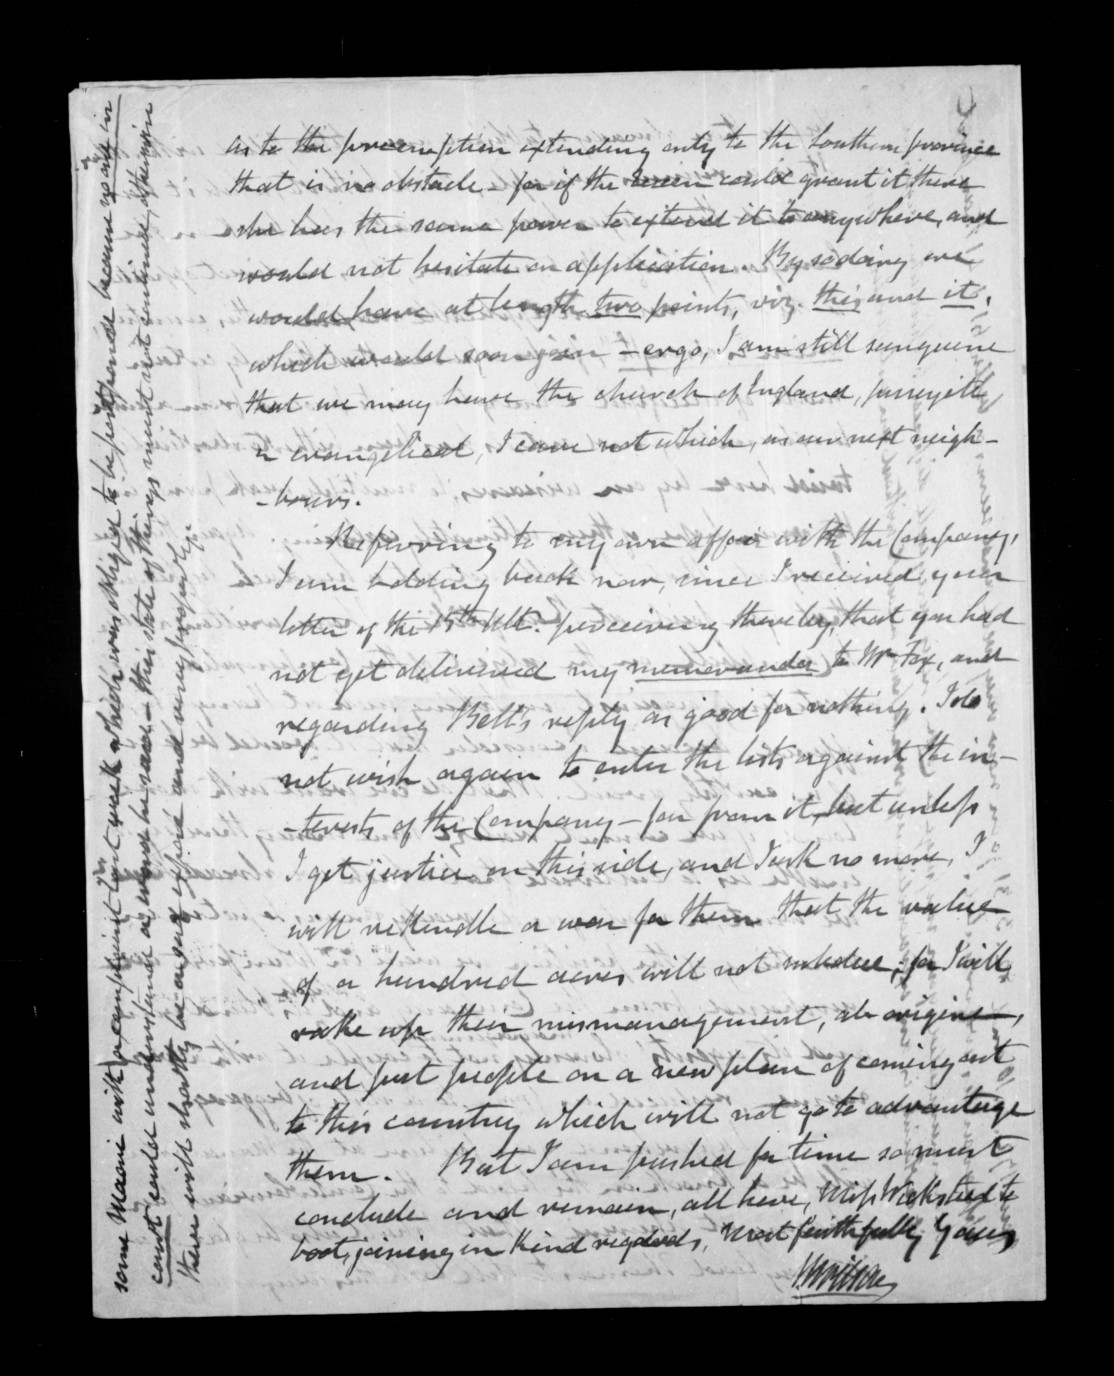 as to the preemption extending only to the Southern province
that is no obstacle - for if the Queen could grant it there
she has the same power to extend it to anywhere, and
would not hesitate on application. By so doing we
would have at length two points, viz. this and it,
which would soon join - ergo, I am still sanguine
that we may have the church of England, puseyite
or evangelical, I care not which, as our next neigh-
-bours.
Referring to my own affair with the Company,
I am holding back now, since I received your
letter of the 15th Ult. perceiving thereby, that you had
not yet delivered my memoranda to Mr Fox, and
regarding Bell's reply as good for nothing. I do
not wish again to enter the lists against the in-
-terests of the Company - far from it, but unless
I get justice on this side, and I ask no more, I
will rekindle a war for them that the value
of a hundred acres will not subdue; for I will
rake up their mismanagement, ab origine,
and put people on a new plan of coming out
to this country which will not go to advantage
them. But I am pushed for time so must
conclude and remain, all here, Miss Wicksteed to
boot, joining in kind regards, Most faithfully Yours
some Maorie with a complaint last week which was obliged to be postponed because no one in
court could understand a word he said - this state of things must not continue, otherwise
there will shortly be a sad exposé and very properly.